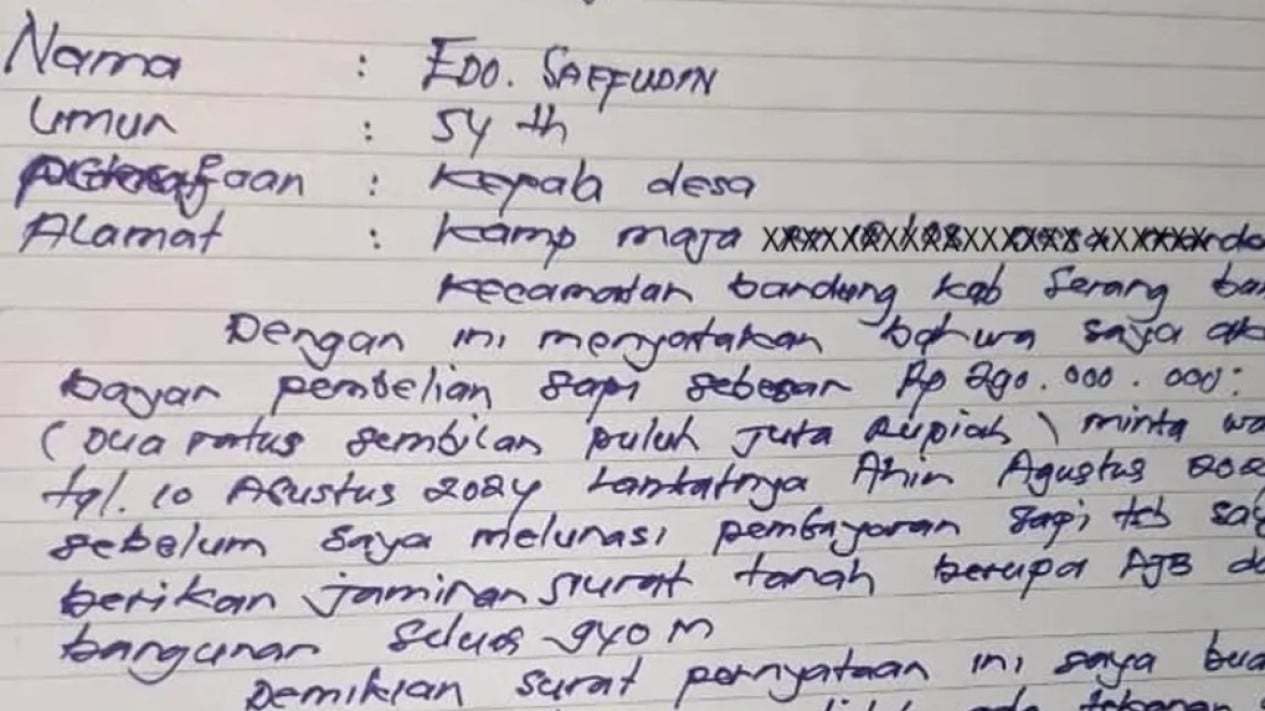 Nama : EDO. SAEFUDIN
Umur : 54 th
: Kepala desa
ALamat : Kamp maja
Kecamatan bandung kab Serang ban
Dengan ini menyatakan bahwa saya ak
bayar pembelian sapi sebesar Rp 290.000.000:
(Dua ratus sembilan puluh Juta Rupiah) minta wa
tgl. 10 Agustus 2024 Ahir Agustus 202
sebelum saya melunasi pembayaran sapi tsb say
berikan jaminan surat tanah berupa AJB da
bangunan seluas 940 M
Demikian surat pernyataan ini saya bua
tekanan